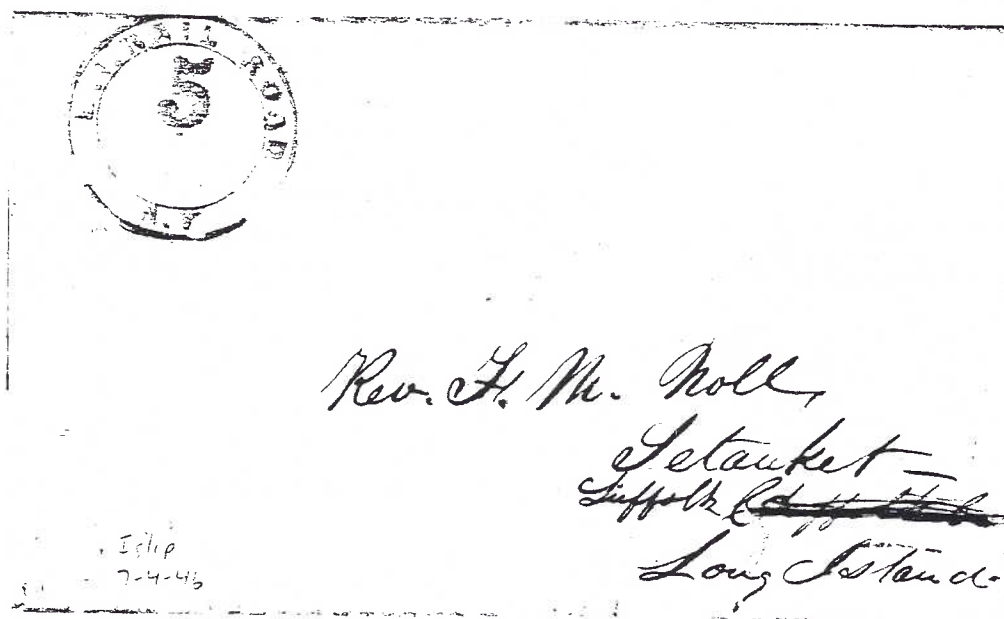 L.I. RAIL ROAD
5
N.Y.
Rev. F. M. Noll,
Setauket –
Suffolk
Long Island.
Islip
7-4-46